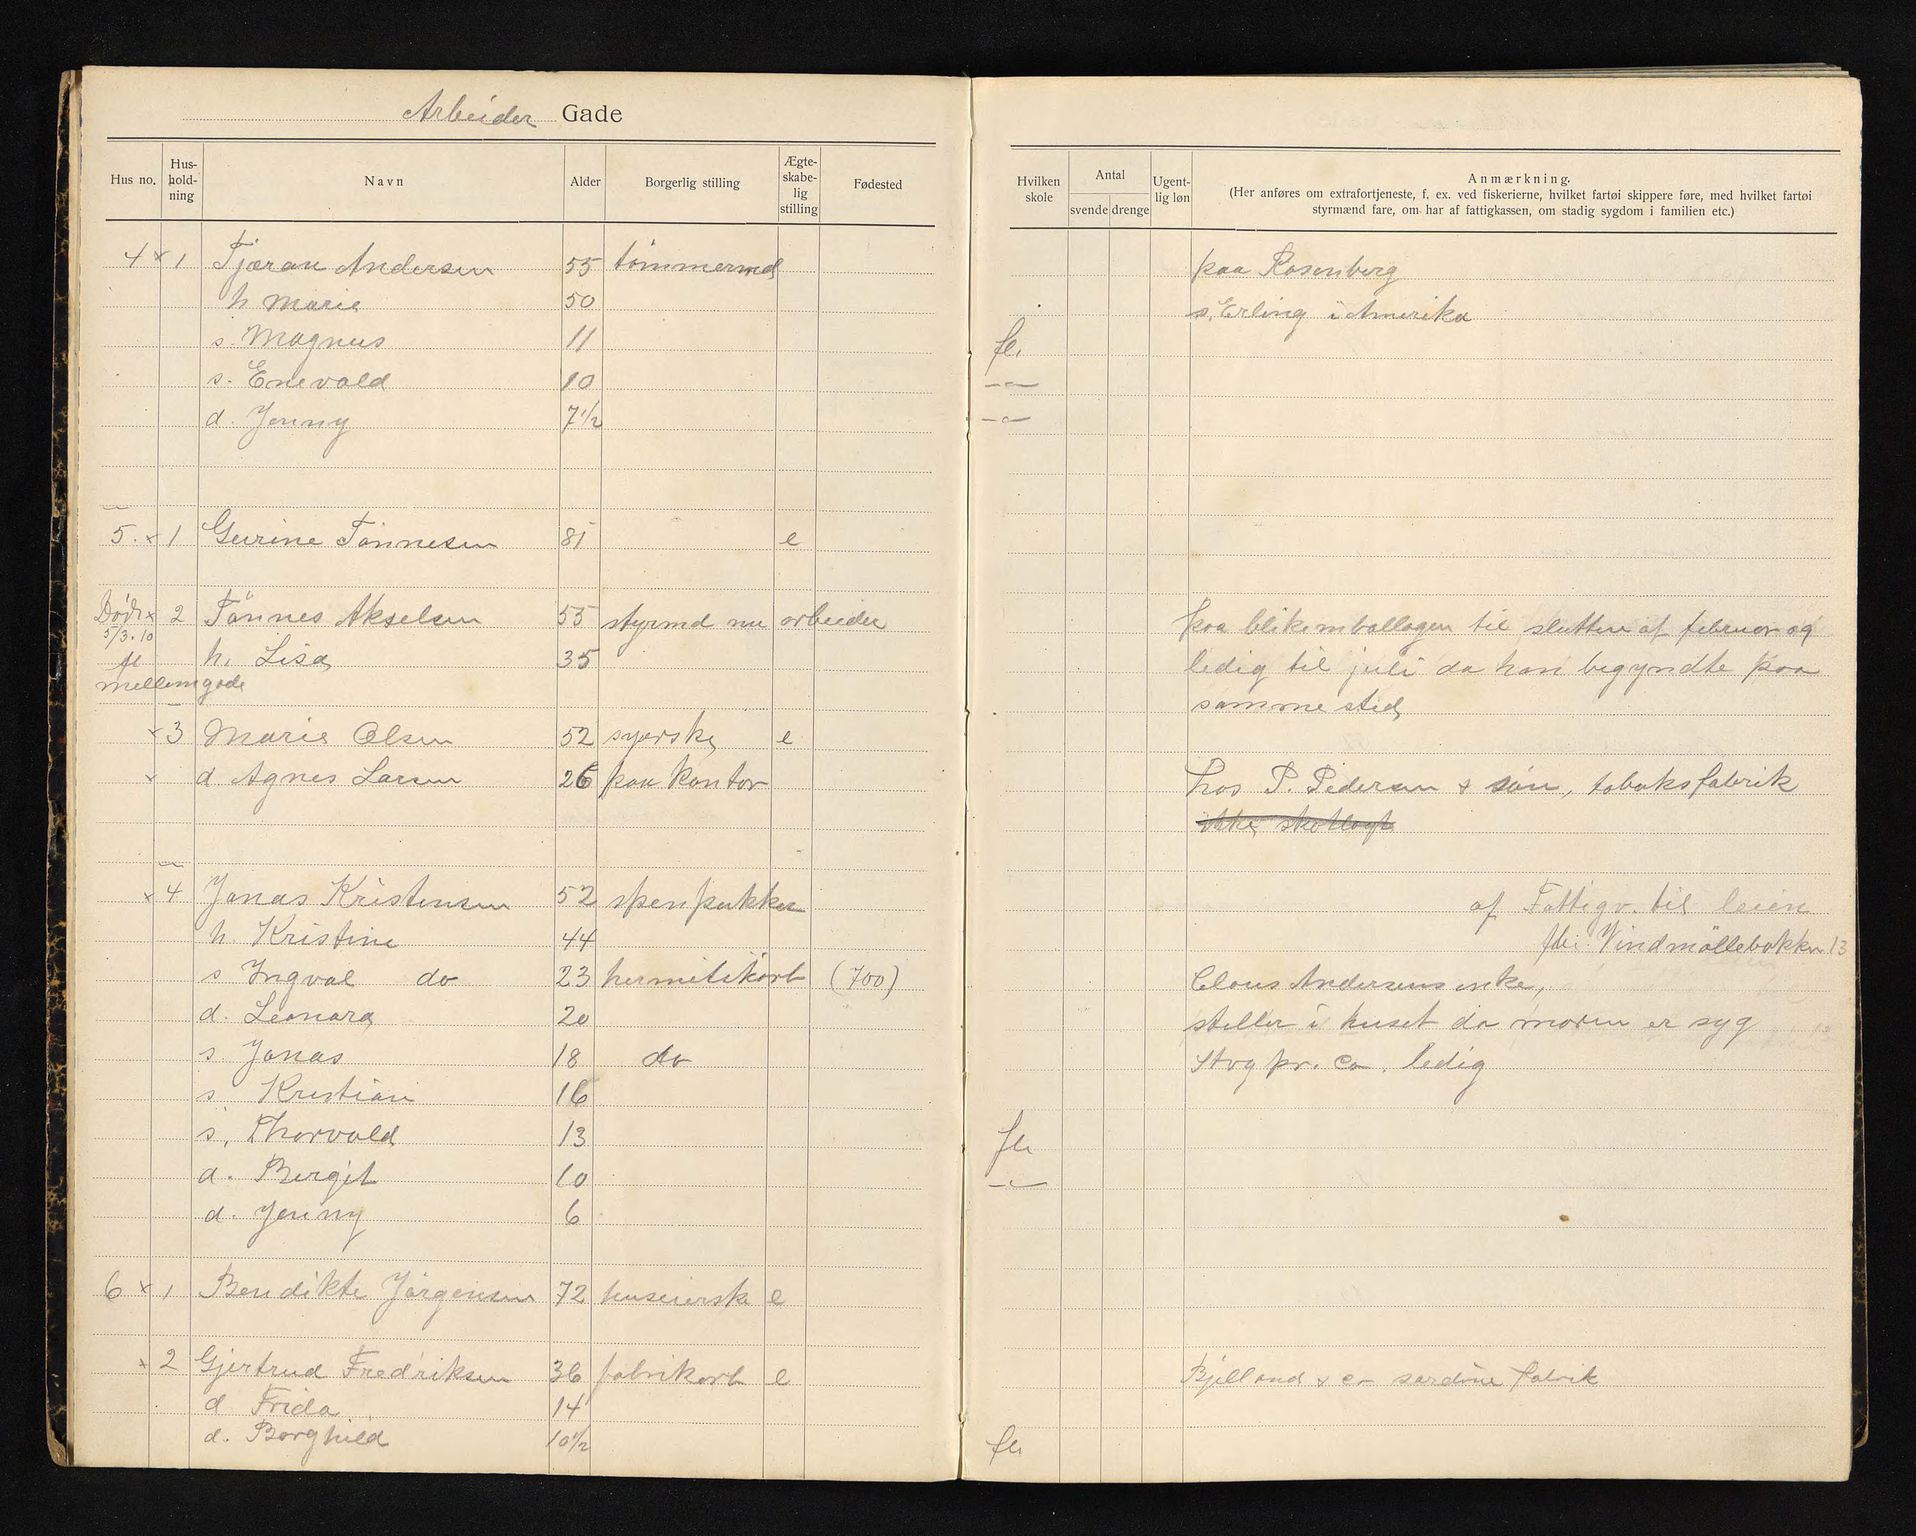 Arbeider Gade
Hus no. Hus-hold-ning Navn Alder Borgerlig stilling Ægte-skabe-lig stilling Fødested
Hvilken skole Antal svende drenge Ugent-lig løn Anmærkning.
(Her anføres om extrafortjeneste, f. ex. ved fiskerierne, hvilket fartøi skippere føre, med hvilket fartøi
styrmænd fare, om har af fattigkassen, om stadig sygdom i familien etc.)
4 x 1 Tjæran Andersen 55 tömmermd paa Rosenberg
h Marie 50 s. Erling i Amerika
s. Magnus 11 fl.
s. Enevald 10 —"—
d. Jenny 7 1/2 —"—
5. x 1 Gurine Tönnesen 81 e
Död x 2 Tönnes Akselsen 55 styrmd nu arbeider paa blikemballagen til slutten af februar og
5/3.10
fl h. Lisa 35 ledig til juli da han begyndte paa
mellemgade
samme sted
x 3 Marie Olsen 52 syerske e
x d Agnes Larsen 26 paa kontor hos P. Pedersen & sön, tobaksfabrik
ikke skatlagt
x 4 Jonas Kristensen 52 stenpukker af Fattigv. til leien
h. Kristine 44 Vindmöllebakken 13
s Ingval do 23 hermetikarb (700) Claus Andersens enke,
d. Leonora 20 steller i huset da moren er syg
s Jonas 18 do Stvg pr. Co. ledig
s. Kristian 16
s. Thorvald 13 fl.
d. Bergit 10 —"—
d. Jenny 6
6 x 1 Bendikte Jörgensen 72 huseierske e
x 2 Gjertrud Fredriksen 36 fabrikarb e Bjelland & co sardine fabrik
d Frida 14
d. Borghild 10 1/2 fl.